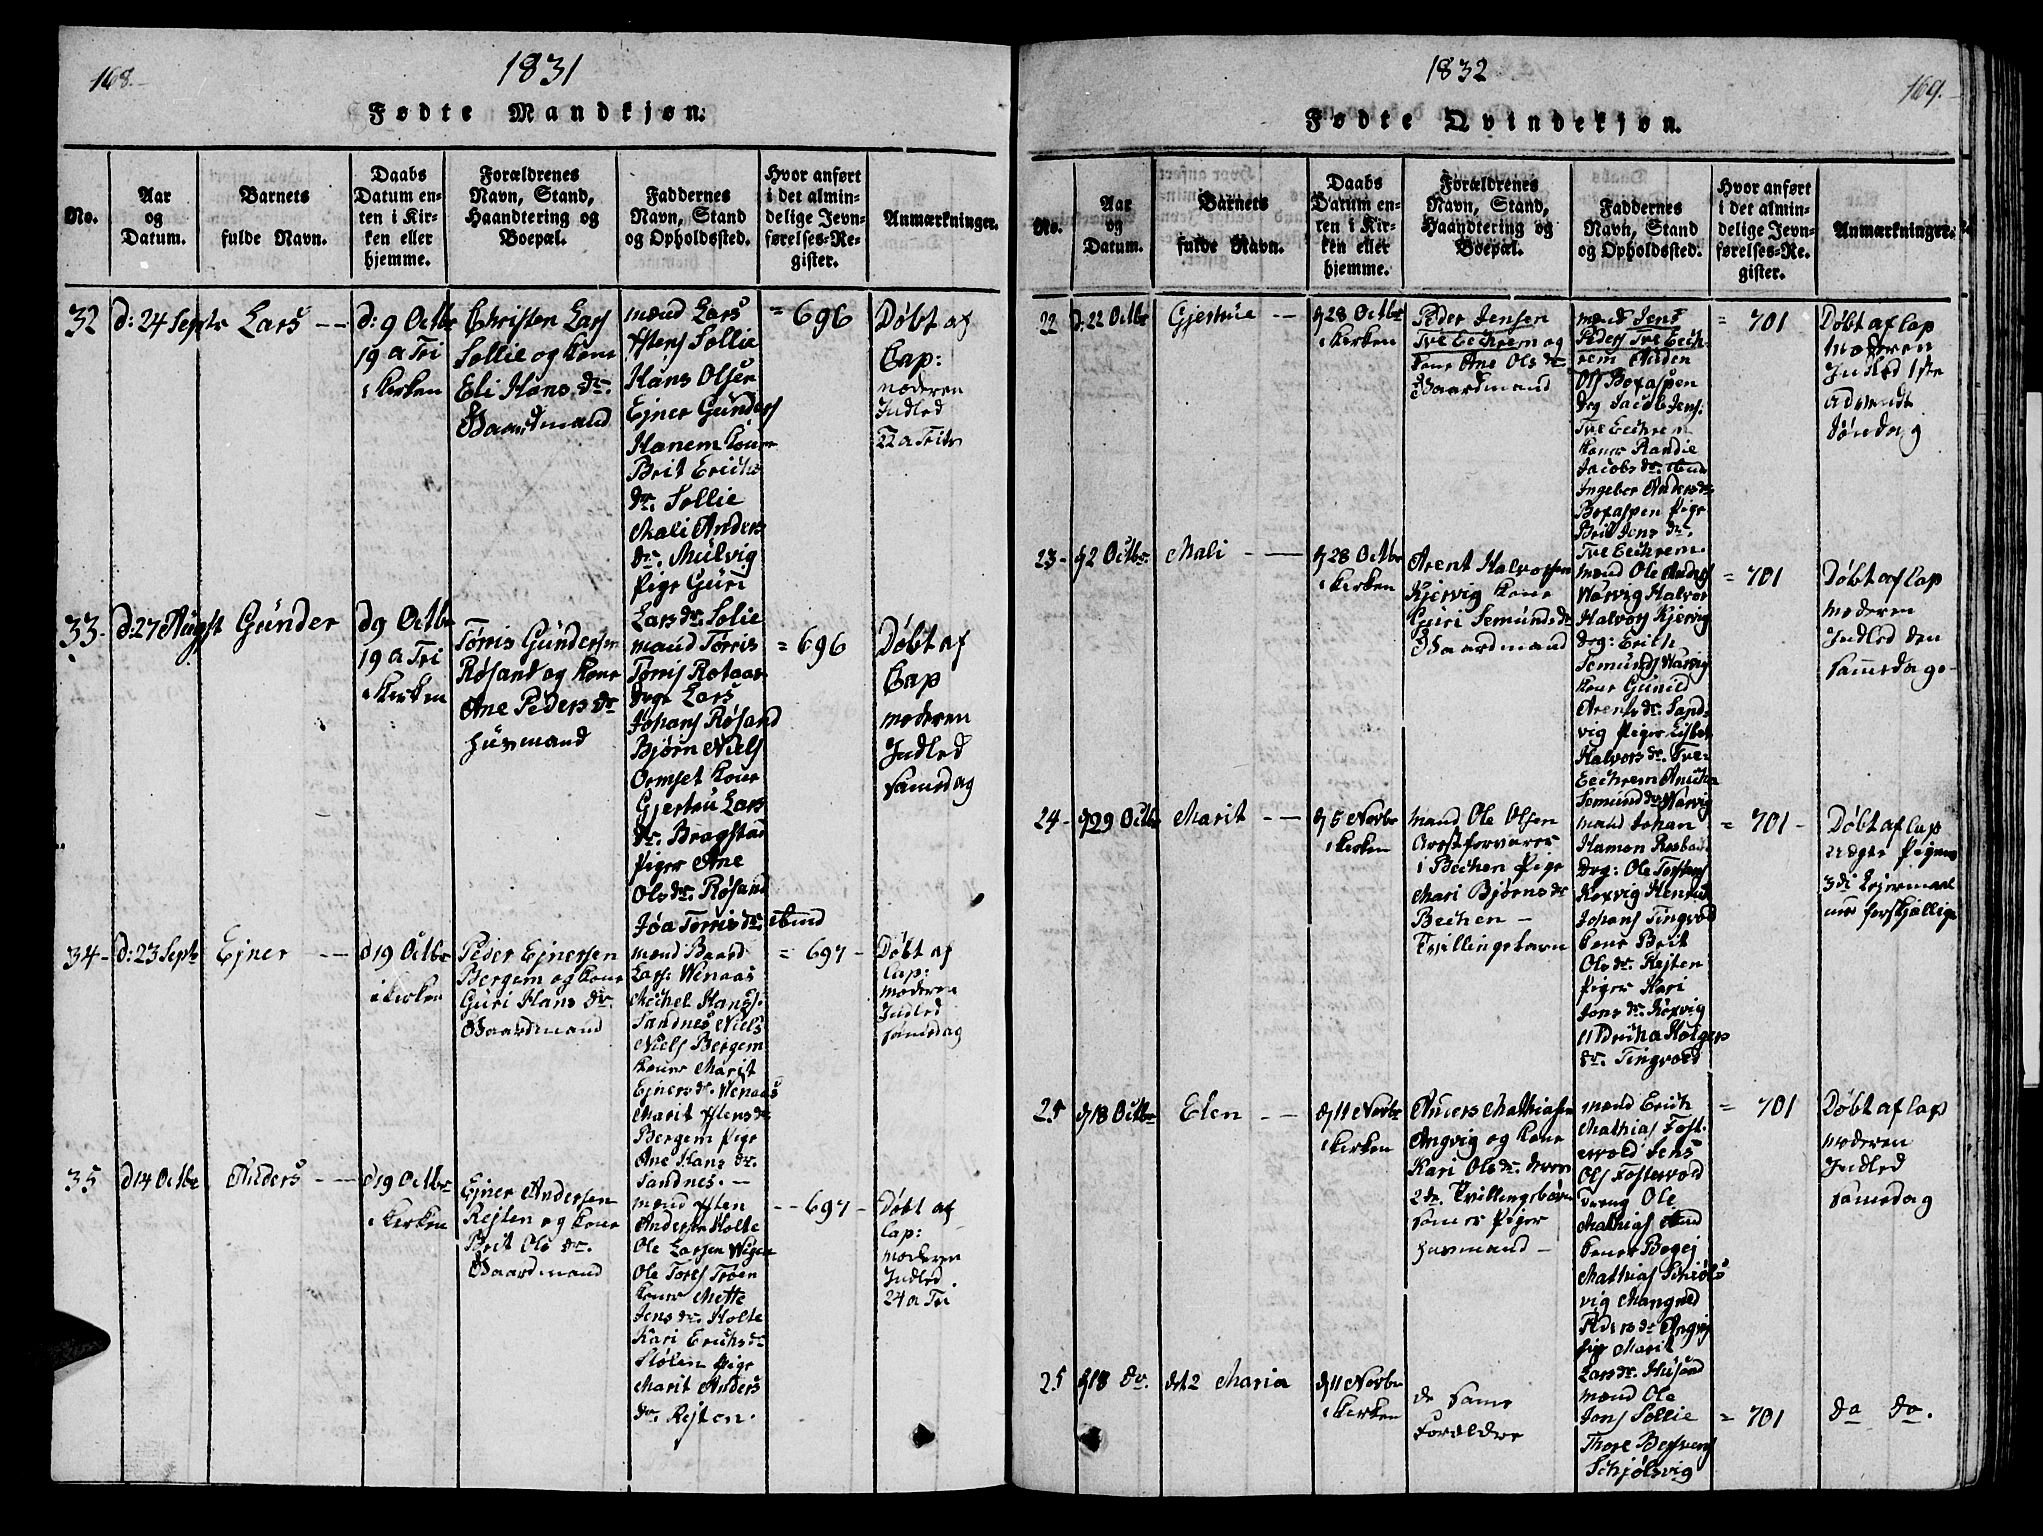 168.
1831
Fødte Mandkjøn.
No.
Aar
og
Datum.
Barnets
fulde Navn.
Daabs
Datum en-
ten i Kir-
ken eller
hjemme.
Forældrenes
Navn, Stand,
Haandtering og
Boepæl.
Faddernes
Navn, Stand
og Opholdssted.
Hvor anført
i det almin-
delige Jevn-
førelses-Re-
gister.
Anmærkninger.
32
d: 24 Septr
Lars
d: 9 Octbr
19 a Tri
i Kirken
Christen Lars
Sollie og Kone
Eli Hans dr.
Gaardmand
mænd Lars
Iftens Sollie
Hans Olsen
Ejner Gunders
Hanem Koner
Brit Erichs
dr. Sollie
Mali Anders
dr. Mulvig
Pige Guri
Lars dr. Solie
= 696
Døbt af
Cap:
moderen
Indled
22 a Trits
33-
d: 27 August
Gunder
d 9 Octbr
19 a Tri
i Kirken
Tørris Gundersen
Røsand og Kone
Ane Peders dr
Husmand
mand Tørris
Tørris Rotaas
Drge Lars
Johans Røsand
Bjørn Niels
Ormset Kone
Gjertru Lars
dr. Bragstad
Piger Ane
Ols dr. Røsand
Jøa Tørris dr. ibid
= 696
Døbt af
Cap
moderen
Indled
samedag
34-
d: 23 Septr
Ejner
d 19 Octbr
i Kirken
Peder Ejnersen
Bergem og Kone
Guri Hans dr.
Gaardmand
mænd Baard
Lars Wenaas
Michel Hans
Sandnes Niels
Niels Bergem
Koner Marit
Ejners dr. Wenaas
Marit Iftens dr
Bergem Pige
Ane Hans dr.
Sandnes.
= 697 -
Døbt af
Cap:
moderen
Indled
samedag
35
d 14 Octbr
Anders
d 19 Octbr
i Kirken
Ejner Andersen
Rejten og Kone
Brit Ols dr.
Gaardmand
mænd Iften
Anders Holte
Ole Larsen
Ole Tores Trøen
Koner Mette
Jens dr. Holte
Kari Erichs dr
Stølen Pige
Marit Anders
dr. Rejten.
697 -
Døbt af
Cap:
moderen
Indled.
24 a Tri
1832
169.
Fødte Qvindekjøn.
No.
Aar
og
Datum.
Barnets
fulde Navn.
Daabs
Datum en-
ten i Kir-
ken eller
hjemme.
Forældrenes
Navn, Stand,
Haandtering og
Boepæl.
Faddernes
Navn, Stand
og Opholdssted.
Hvor anført
i det almin-
delige Jevn-
førelses-Re-
gister.
Anmærkninger.
22
d: 22 Octbr
Gjertrue
d 28 Octbr
i Kirken
Peder Jensen
Tve Eechrem og
Kone Ane Ols dr
Gaardmand
mænd Jens
Peders Tve Eech-
rem Anden
Ols Boxaspen
Drg Jacob Jens:
Tve Eechrem
Koner Randie
Jacobs dr. ibid
Ingeber Anders dr
Boxaspen Pige
Brit Jens dr.
Tve Eechrem.
= 701
Døbt af Cap
Moderen
Indled 1ste
Advendt
Søndag
23-
d 2 Octbr.
Mali
d 28 Octbr
i Kirken
Arent Halvorsen
Kjervig Kone
Guri Semunds dr
Gaardmand
mænd Ole Anders
Warvig Halvor
Halvors Kjervig
Drg: Erich
Semunds Warvig
Kone Gunild
Arents dr. Sand-
vig Piger Lisbet
Halvors dr. Tve-
Eechrem Anicha
Semunds dr Warvig
= 701
Døbt af Cap
moderen
Indled den
samedag-
24-
d 29 Octbr
Marit
d 5 Novbr
i Kirken
mand Ole Olsen
Arestforvarer
i Bechen Pige
Mari Bjørns dr
Bechen -
Tvillingebarn
mænd Johan
Hamon
Drg: Ole Torstens
Roxvig Henrich
Johans Tingvold
Kone Brit
Ols dr. Rejten
Piger Kari
Jons dr. Roxvig
Holgers
dr. Tingvold
= 701 -
Døbt af Cap
uægte Pigens
3di Lejermaal
25
d 18 Octbr
Elen
d 11 Novbr
i Kirken
Anders Mathiasen
Angvig og Kone
Kari Ols dr. deres
2de Tvillingebørn
Piger
Husmand -
mænd Erich
Mathias Fost-
ervold Jens
Ols Fostervold
Dreng Ole
Mathias ibid
Koner
Mathias Schiøls
vig Mangred
Peders dr Angvig
pige Marit
Lars dr. Husund
= 701
Døbt af Cap
moderen
Indled
samedag
25
d 18 do.
det 2 Maria
d 11 Novbr
i Kirken
de Same
Forældre
mænd Ole
Jons Sollie
Thore
Schjølsvig
= 701
do do.